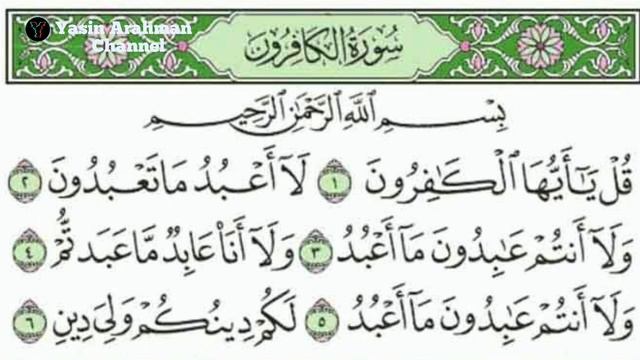 Yasin Arahman
Channel
سُورَةُ الكَافِرُونَ
بِسْمِ اللَّهِ الرَّحْمَٰنِ الرَّحِيمِ
قُلْ يَٰٓأَيُّهَا ٱلْكَٰفِرُونَ ١ لَآ أَعْبُدُ مَا تَعْبُدُونَ ٢
وَلَآ أَنتُمْ عَٰبِدُونَ مَآ أَعْبُدُ ٣ وَلَآ أَنَا۠ عَابِدٌ مَّا عَبَدتُّمْ ٤
وَلَآ أَنتُمْ عَٰبِدُونَ مَآ أَعْبُدُ ٥ لَكُمْ دِينُكُمْ وَلِىَ دِينِ ٦